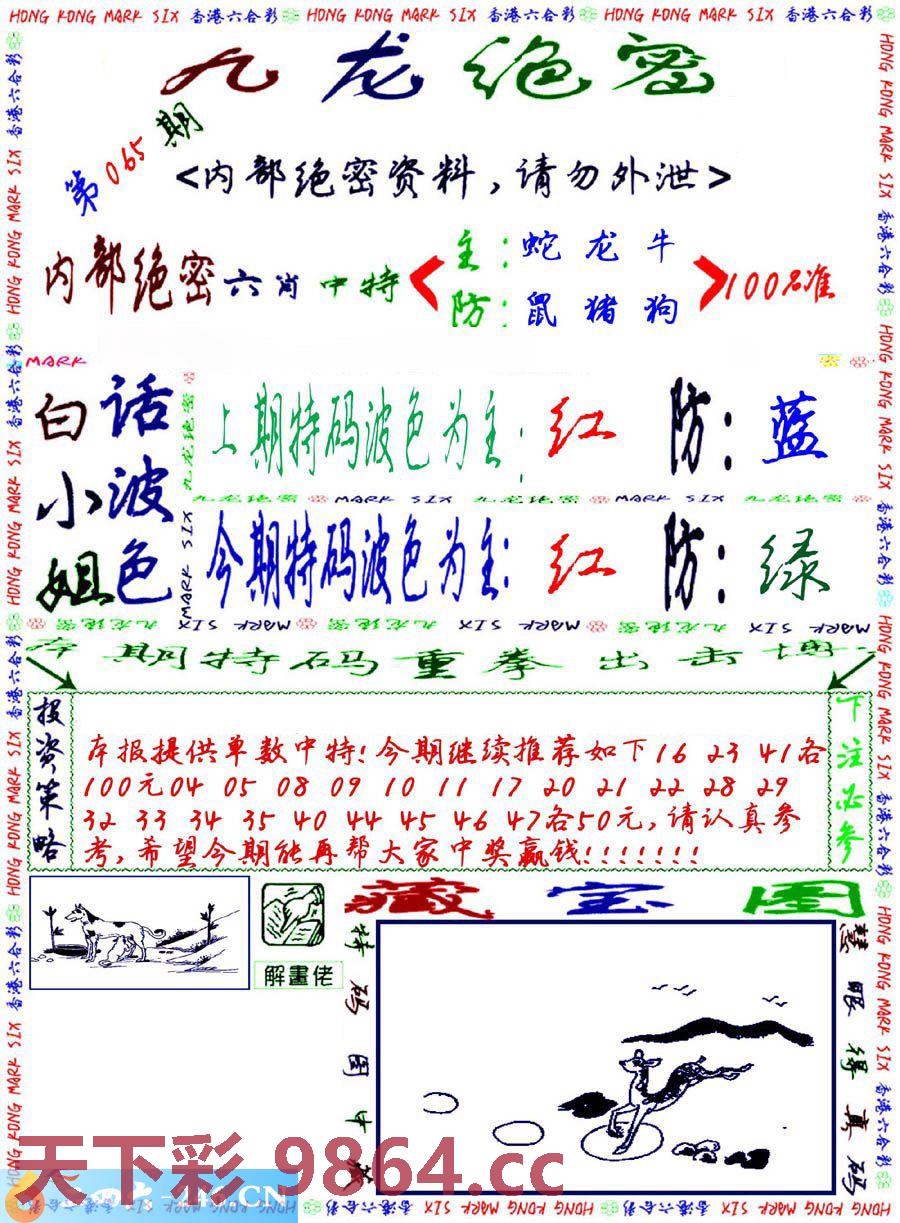 HONG KONG MARK SIX 香港六合彩 HONG KONG MARK SIX 香港六合彩 HONG KONG MARK SIX 香港六合彩
九龙绝密
第065期
<内部绝密资料,请勿外泄>
内部绝密六肖中特
主:蛇龙牛
防:鼠猪狗
100%准
MARK
白话
小波
姐色
九龙绝密
MARK SIX
上期特码波色为主:红 防:蓝
九龙绝密 MARK SIX 九龙绝密 MARK SIX 九龙绝密
今期特码波色为主:红 防:绿
九龙绝密 MARK SIX 九龙绝密 MARK SIX 九龙绝密 MARK SIX
期特码重拳出击
投资策略
本报提供单数中特!今期继续推荐如下16 23 41各
100元04 05 08 09 10 11 17 20 21 22 28 29
32 33 34 35 40 44 45 46 47各50元,请认真参
考,希望今期能再帮大家中奖赢钱!!!!!!!
下注必参
解畫佬
藏宝图
特码图中藏
慧眼得真码
天下彩 9864.cc
HONG KONG MARK SIX 香港六合彩
HONG KONG MARK SIX 香港六合彩